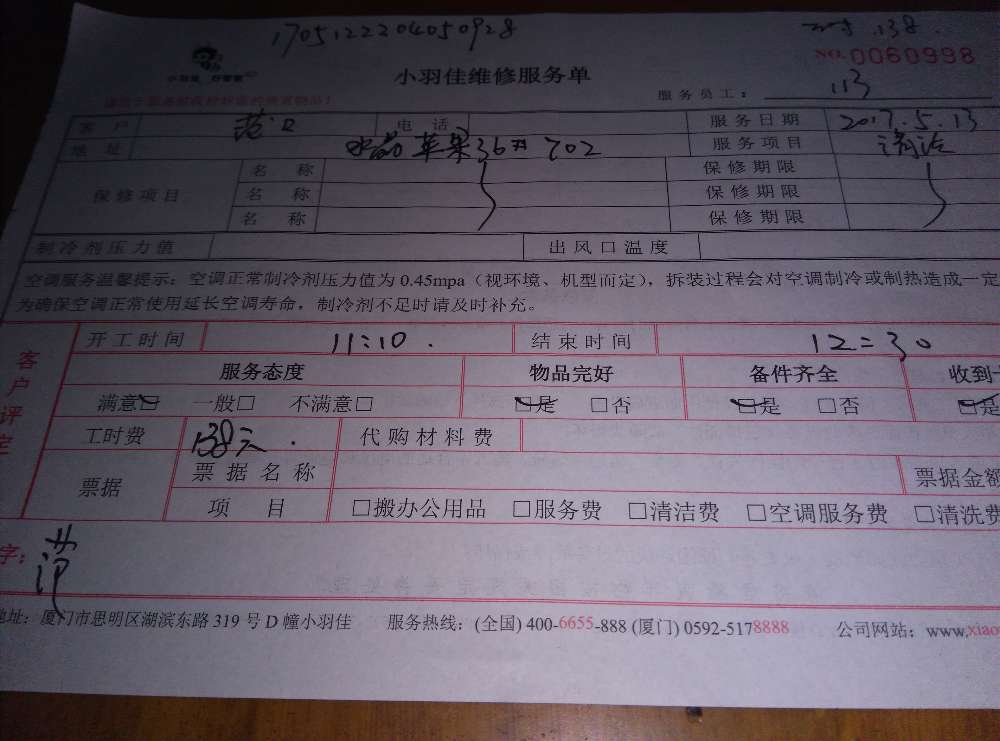 1705122204050928
138
NO. 0060998
小羽佳 好管家
小羽佳维修服务单
服务员工： 113
客 户 电 话 服务日期 2017.5.13
地 址 水晶苹果36# 702 服务项目 清洁
保修项目 名 称 保修期限
名 称 保修期限
名 称 保修期限
制冷剂压力值 出风口温度
空调服务温馨提示：空调正常制冷剂压力值为 0.45mpa（视环境、机型而定），拆装过程会对空调制冷或制热造成一定
为确保空调正常使用延长空调寿命，制冷剂不足时请及时补充。
客户评定
开工时间 11:10. 结束时间 12:30
服务态度 物品完好 备件齐全 收到
满意☑ 一般□ 不满意□ ☑是 □否 ☑是 □否 ☑是
工时费 138元. 代购材料费
票据 票据名称 票据金额
项 目 □搬办公用品 □服务费 □清洁费 □空调服务费 □清洗费
字： 范
地址：厦门市思明区湖滨东路 319 号 D 幢小羽佳 服务热线：(全国) 400-6655-888 (厦门) 0592-5178888 公司网站：www.xiao